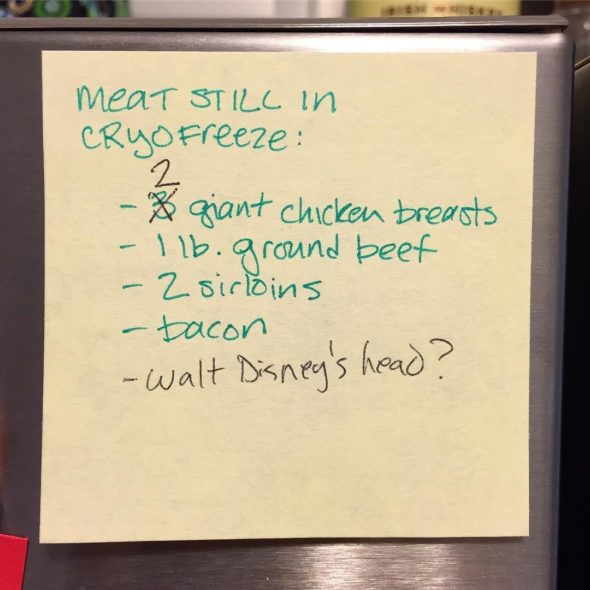 MEAT STILL IN
CRYOFREEZE:
2
- 3 giant chicken breasts
- 1 lb. ground beef
- 2 sirloins
- bacon
- Walt Disney's head?